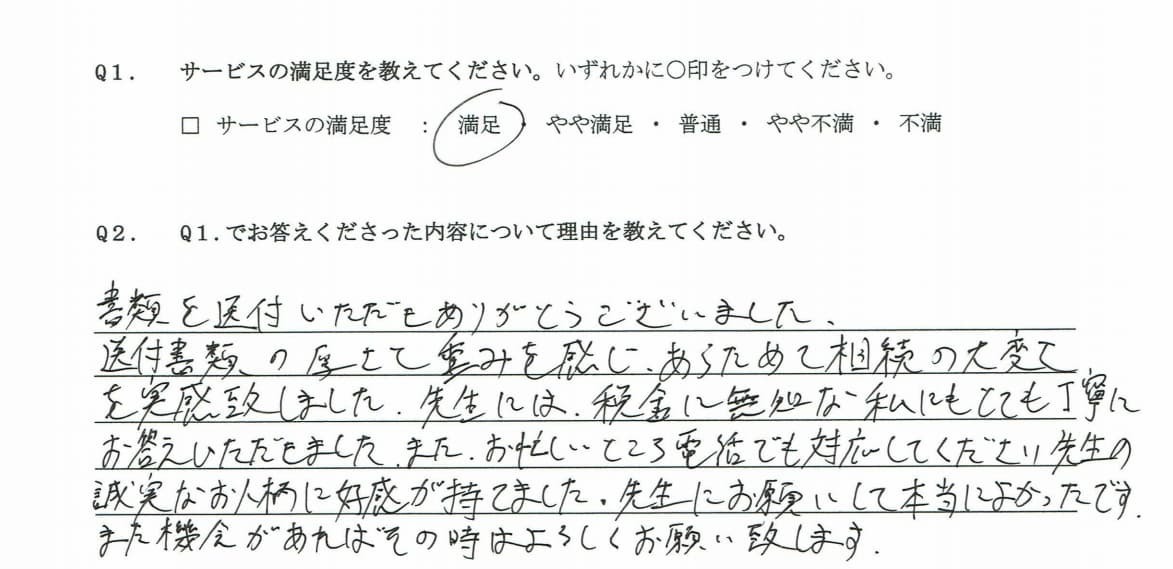 Q1. サービスの満足度を教えてください。いずれかに○印をつけてください。
□ サービスの満足度 : 満足 ・ やや満足 ・ 普通 ・ やや不満 ・ 不満
Q2. Q1.でお答えくださった内容について理由を教えてください。
書類を送付いただきありがとうございました。
送付書類の厚さて重みを感じ、あらためて相続の大変さ
を実感致しました。先生には、税金に無知な私にもとても丁寧に
お答えいただきました。また、お忙しいところ電話でも対応してくださり先生の
誠実なお人柄に好感が持てました。先生にお願いして本当によかったです。
また機会があればその時はよろしくお願い致します。